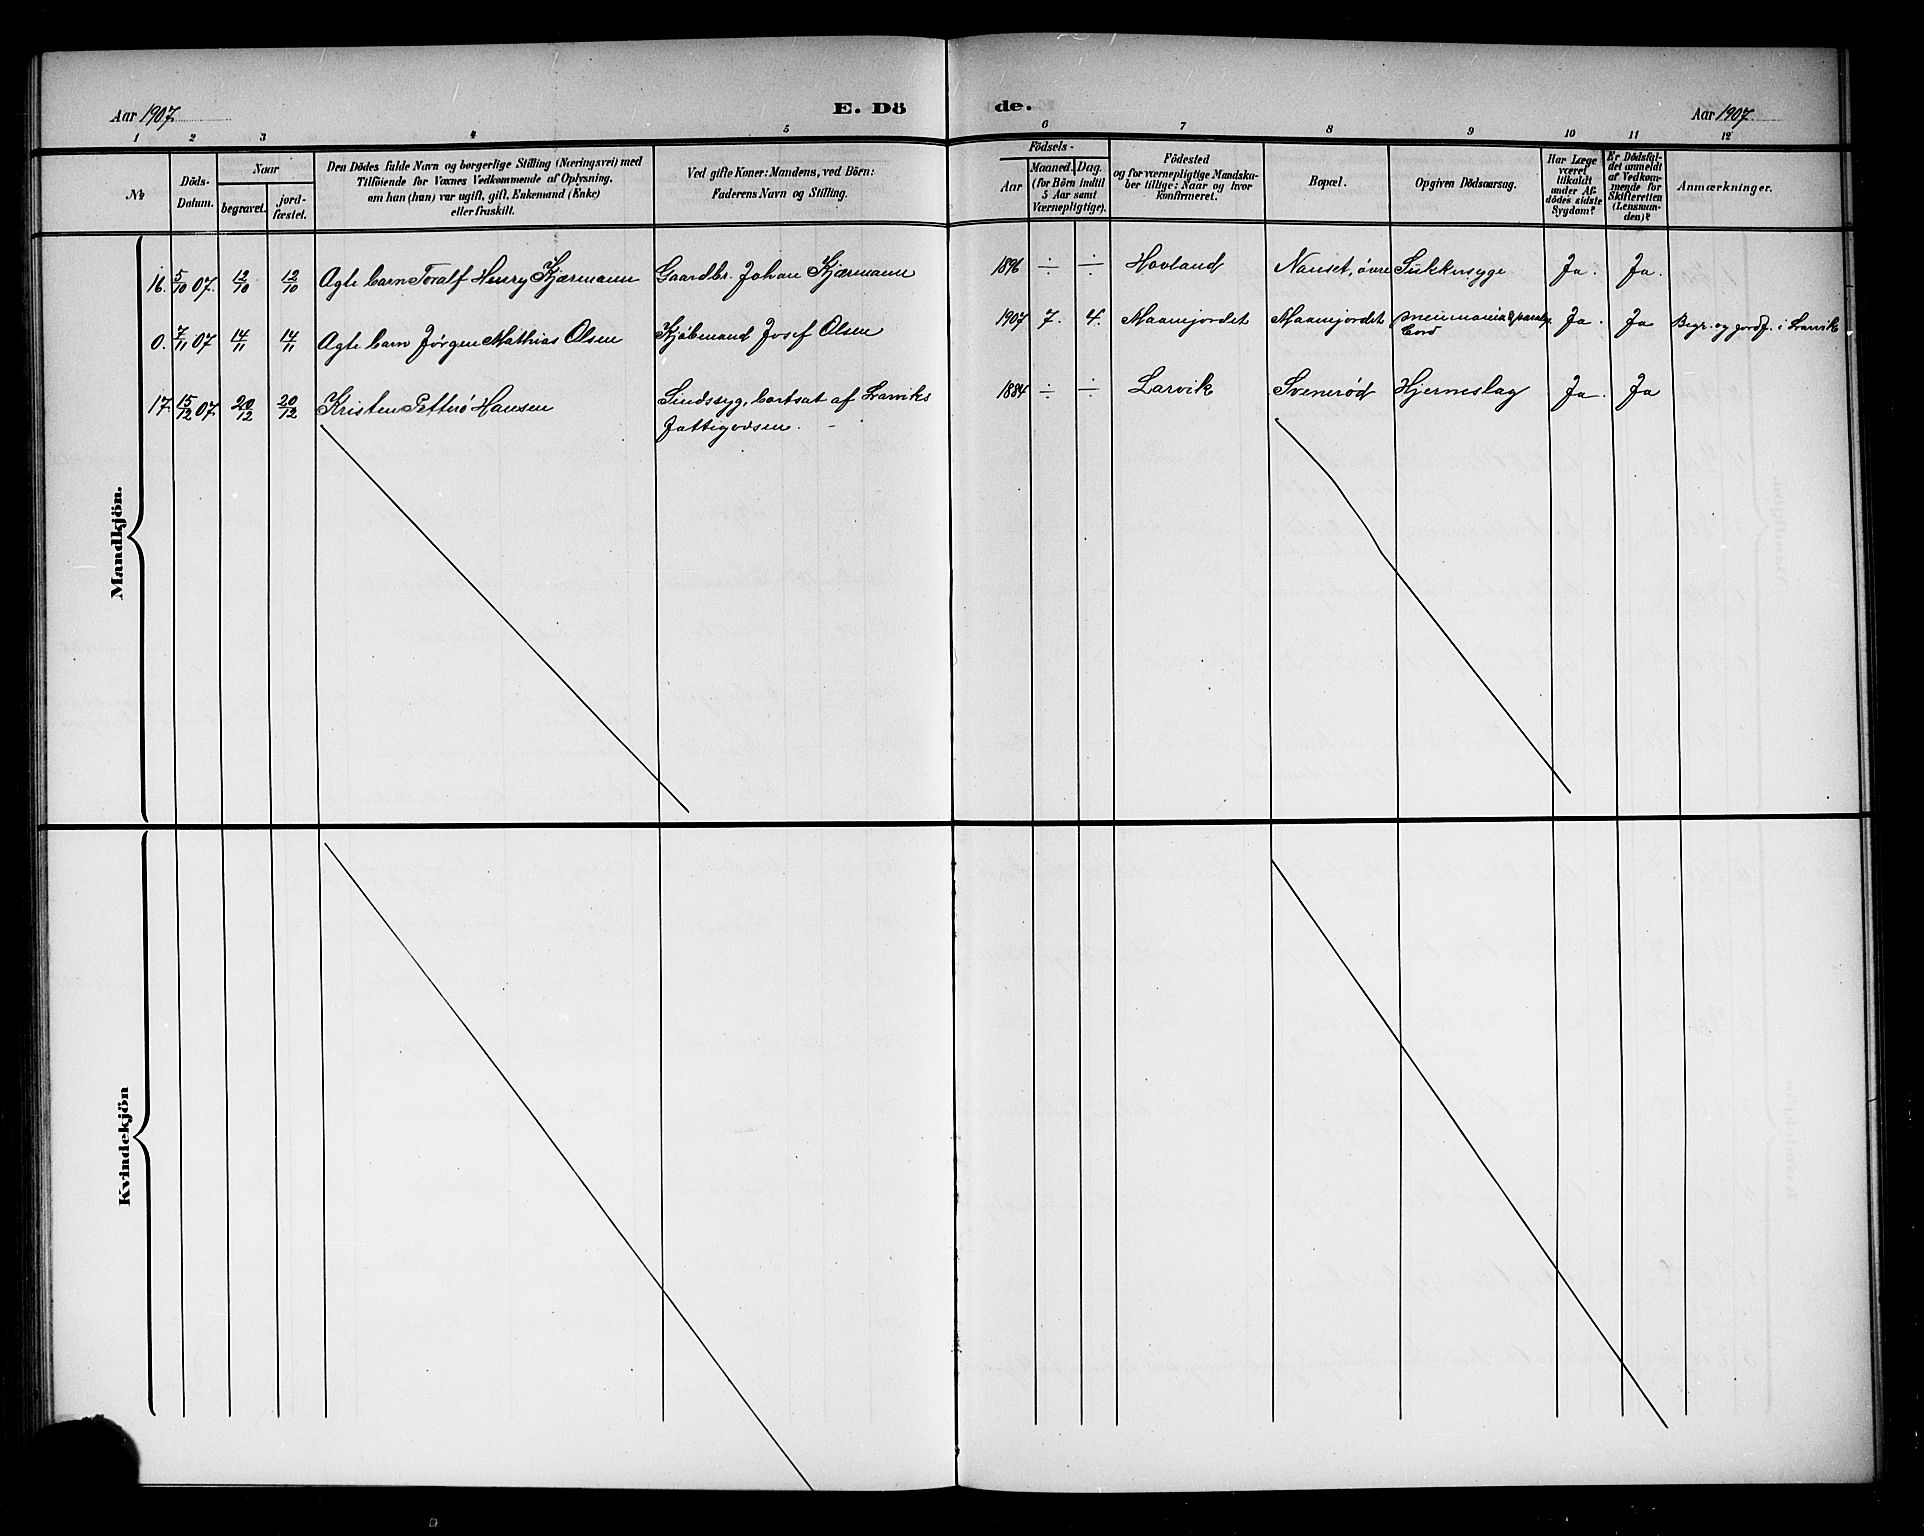 Aar 1907.
E. Dö
de.
Aar 1907.
1
2
3
4
5
6
7
8
9
10
11
12
№
Döds-
Datum.
Naar
begravet.
jord-
fæstet.
Den Dödes fulde Navn og borgerlige Stilling (Næringsvei) med
Tilföiende for Voxnes Vedkommende af Oplysning,
om han (hun) var ugift, gift, Enkemand (Enke)
eller fraskilt.
Ved gifte Koner: Mandens, ved Börn:
Faderens Navn og Stilling.
Födsels-
Aar
Maaned.
Dag.
(for Börn indtil
5 Aar samt
Værnepligtige).
Födested
og for værnepligtige Mandska-
ber tillige: Naar og hvor
konfirmeret.
Bopæl.
Opgiven Dödsaarsag.
Har Læge
været
tilkaldt
under Af-
dödes sidste
Sygdom?
Er Dödsfal-
det anmeldt
af Vedkom-
mende for
Skifteretten
(Lensman-
den)?
Anmærkninger.
Mandkjön.
16. 5/10 07. 12/10 12/10 Ægte barn Toralf Henry Kjærmann Gaardbr. Johan Kjærmann 1896 ÷ ÷ Hovland Nanset, övre Sukkersyge Ja. Ja.
0. 7/11 07 14/11 14/11 Ægte barn Jørgen Mathias Olsen Kjøbmand Josef Olsen 1907 7. 4. Maanejordet Maanejordet pneumonia & paralys. Cord Ja. Ja Begr. og jordf. i Larvik
17. 15/12 07. 20/12 20/12 Kristen Petterø Hansen Sindssyg, bortsat af Larviks 1884 ÷ ÷ Larvik Svenerød Hjerneslag Ja. Ja
fattigvæsen.
Kvindekjön